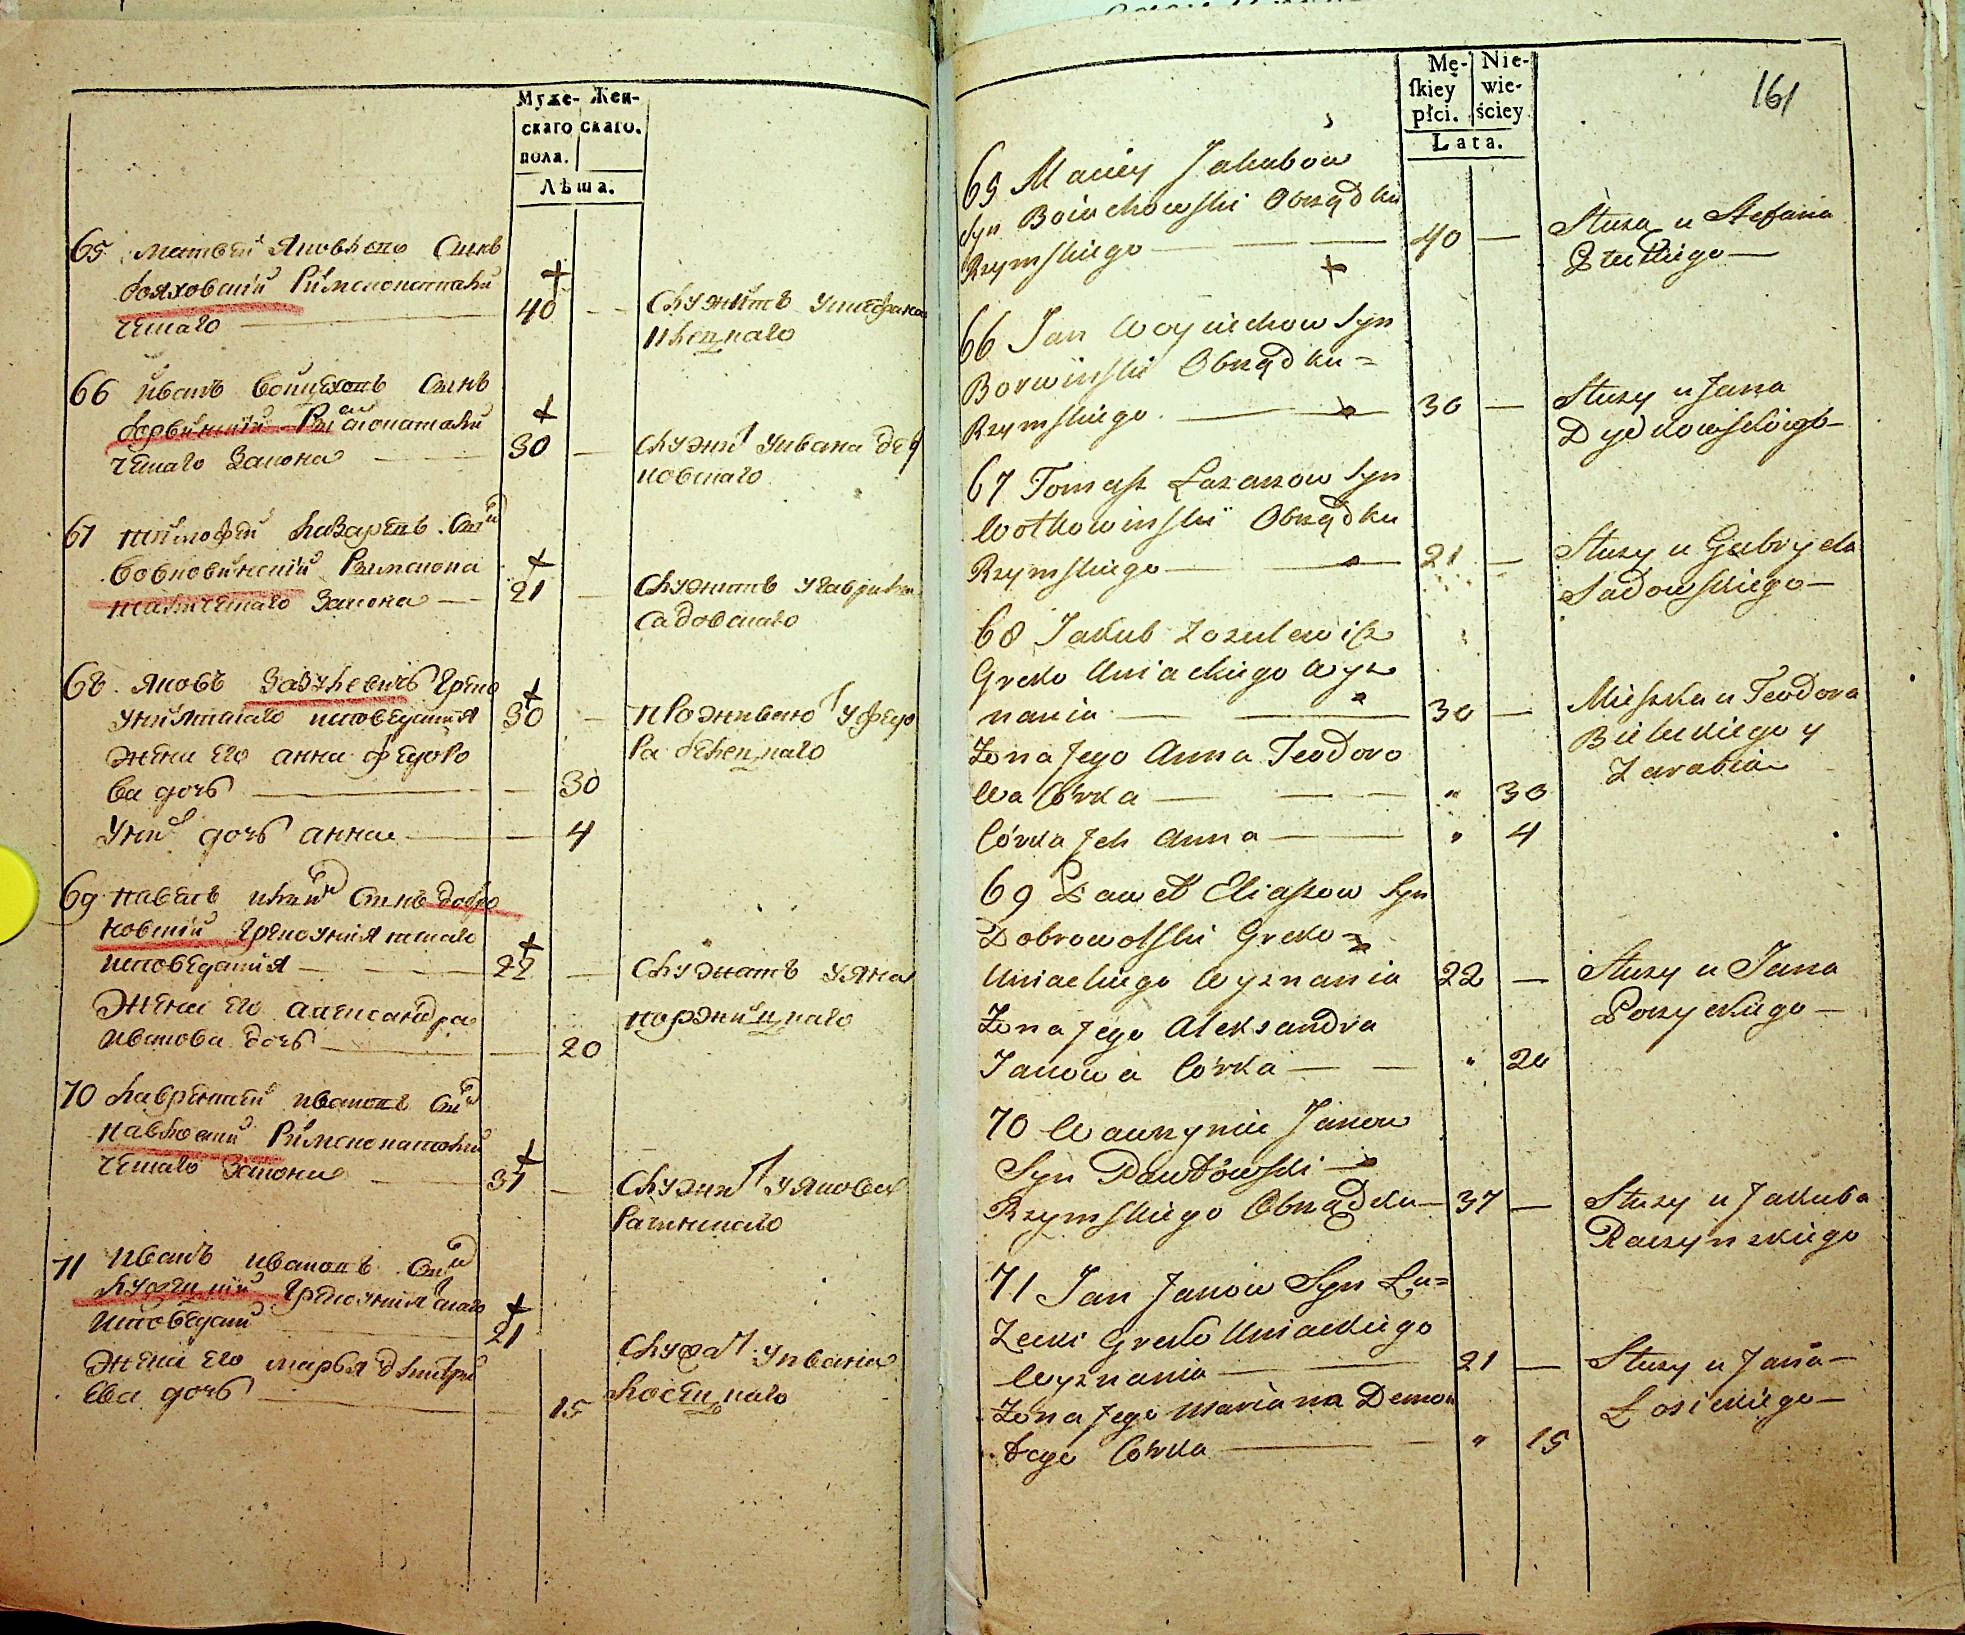 Муже- Жен-
скаго скаго.
пола.
Лѣта.
65 матвей Яковлевъ Сынъ
бояховский Римскокатоли
ческаго 40 служитъ у штефана
66 иванъ войцеховъ Сынъ
борвинский Римскокатоли
ческаго Закона 30 служит у ивана дед
ковскаго
67 тимофей лазаревъ Сын
вовковинский Римскока
толическаго Закона 21 служитъ у гаврила
садовскаго
68 яковъ Зазулевичъ греко
униятскаго исповедания 30 проживают у федо
жена его анна федоро ра белецкаго
ва дочь 30
у них дочь анна 4
69 павелъ илии Сынъ добро
вовский грекоуниятскаго
исповедания 22 служатъ у яна
жена его александра
иванова дочь 20
70 лаврентий ивановъ Сын
павловский Римскокатоли
ческаго Закона 37 служит у якова
рачинскаго
71 иванъ ивановъ Сын
лузецкий грекоуниятскаго
исповедания 21 служат у ивана
жена его марья дмитри лосецкаго
ева дочь 15
161
Mę- Nie-
ſkiey wie-
płci. ściey
Lata.
65 Maciey Jakubow
Syn Boiachowski Obrządku
Rzymskiego 40 Służą u Stefana
66 Jan Woyciechow Syn
Borwinski Obrządku =
Rzymskiego 30 Służy u Jana
Dydkowskiego
67 Tomasz Łazarzow Syn
Wołkowinski Obrządku
Rzymskiego 21 Służy u Gabryela
Sadowskiego
68 Jakub Zozulewicz
Greko Uniackiego Wyz
nania 30 Mieszka u Teodora
Żona Jego Anna Teodoro Bieleckiego y
wa Córka " 30 Zarabia
Córka Jch Anna " 4
69 Paweł Eliaszow Syn
Dobrowolski Greko =
Uniackiego Wyznania 22 Służy u Jana
Żona Jego Alexandra Porzyckiego
Janowa Córka " 20
70 Wawrzyniec Janow
Syn Pawłowski
Rzymskiego Obrządku 37 Służy u Jakuba
Raczynskiego
71 Jan Janow Syn Łu=
zecki Greko Uniackiego
Wyznania 21 Służy u Jana
Żona Jego Marianna Demon Łosickiego
tego Córka " 15